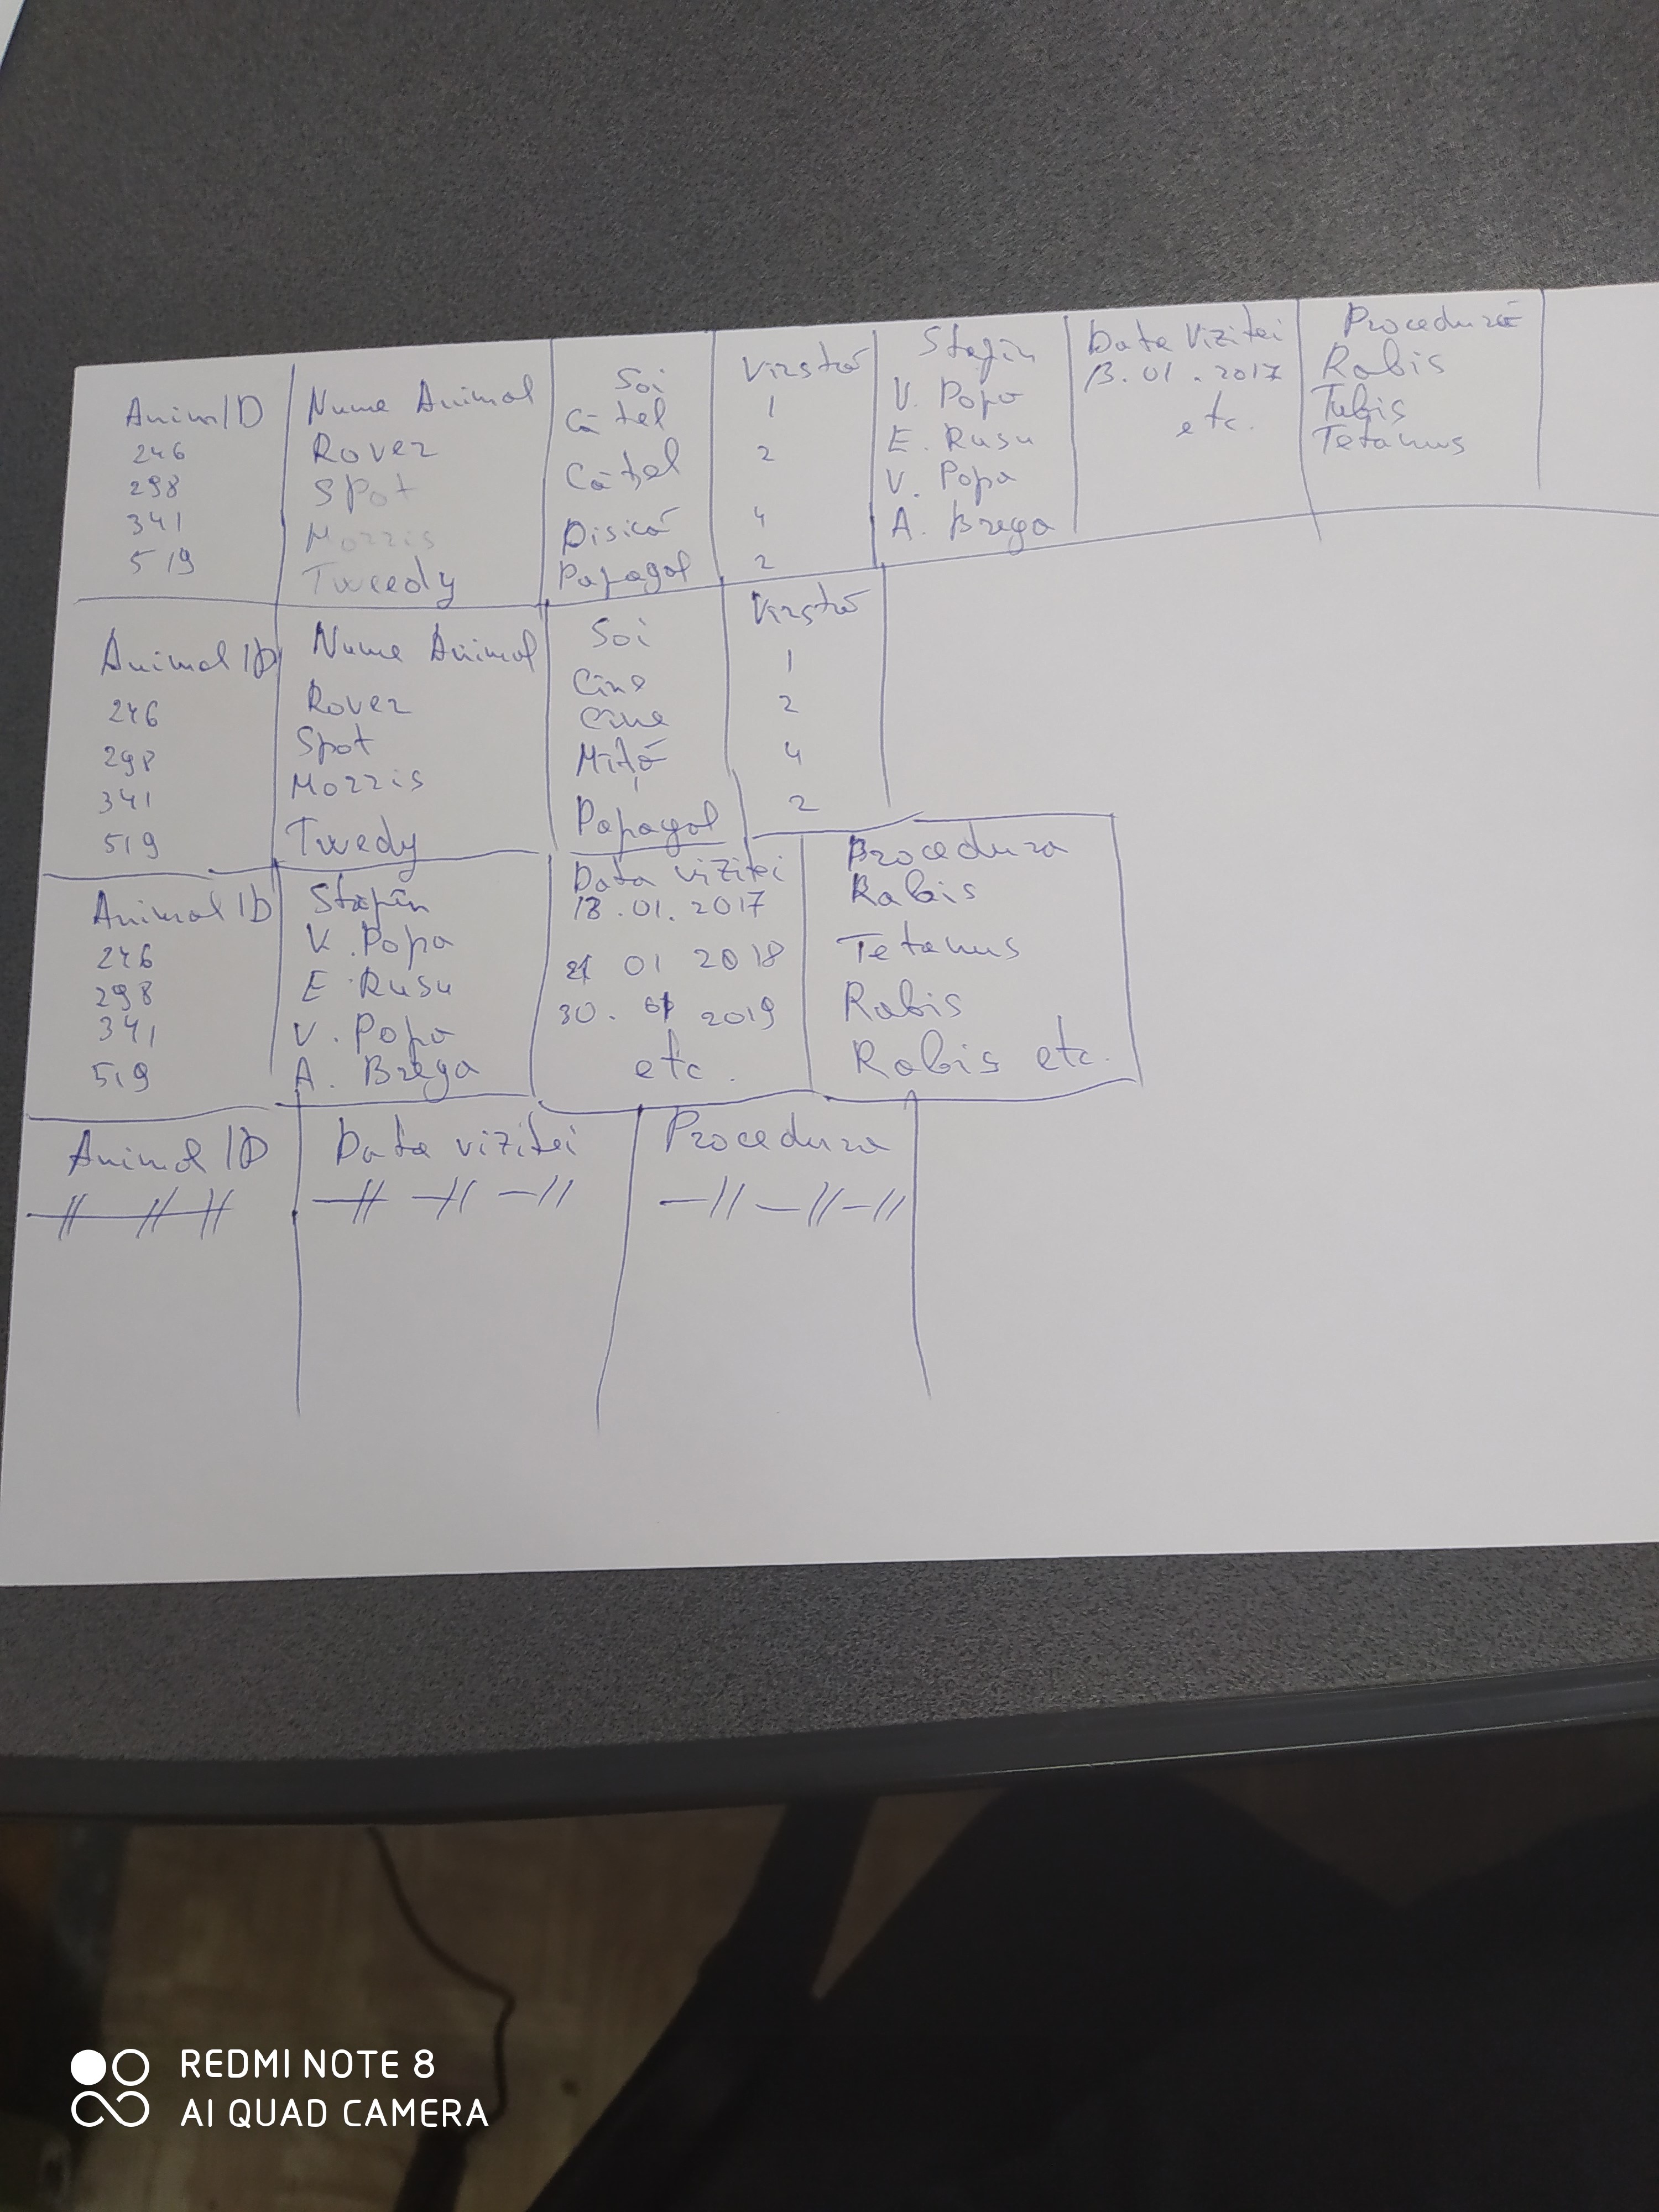 AnimID Nume Animal Soi Vîrstă Stapîn Data Vizitei Procedura
246 Rover Cățel 1 V. Popa 13.01.2017 Rabis
298 Spot Cățel 2 E. Rusu etc.
341 Morris Pisică 4 V. Popa Tetanus
519 Tweedy Papagal 2 A. Brega
Animal ID Nume Animal Soi Vîrstă
246 Rover Cîne 1
298 Spot Cîne 2
341 Morris Mîță 4
519 Twedy Papagal 2
Animal ID Stapîn Data vizitei Procedura
246 V. Popa 13.01.2017 Rabis
298 E Rusu 21 01 2018 Tetanus
341 V. Popa 30. 01 2019 Rabis
519 A. Brega etc. Rabis etc.
Animal ID Data vizitei Procedura
—//—//—// —// —// —// —// —// —//
REDMI NOTE 8
AI QUAD CAMERA